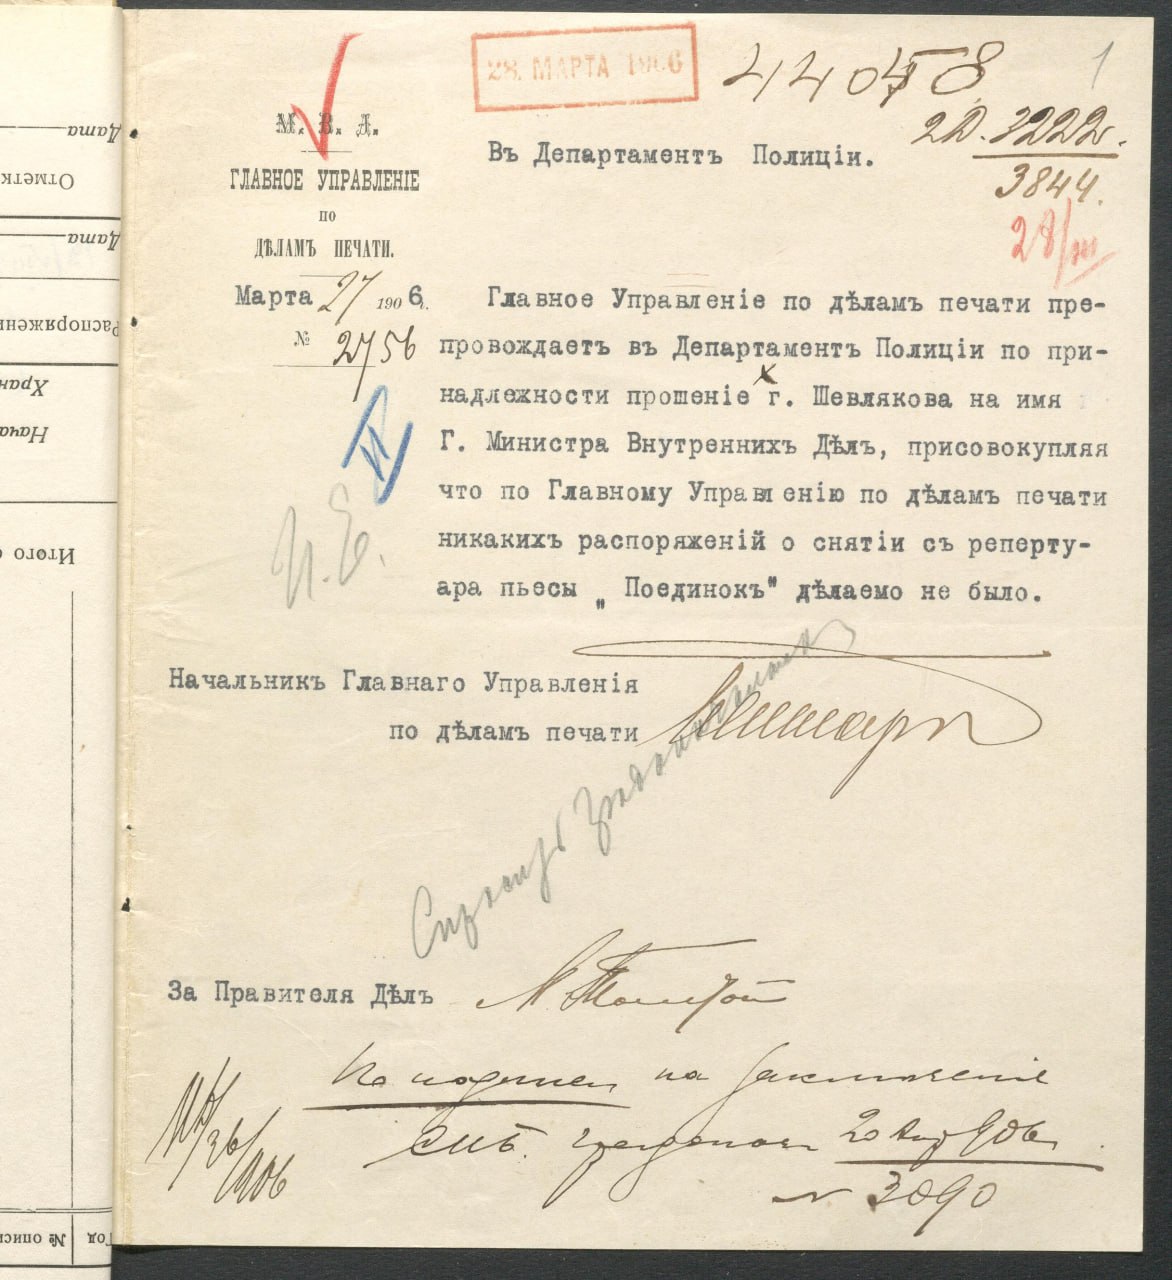 28. МАРТА 1906
44058
1
2Д. 3222.
3844.
28/III
М. В. Д.
ГЛАВНОЕ УПРАВЛЕНІЕ
ПО
ДѢЛАМЪ ПЕЧАТИ.
Марта 27 1906г.
№ 2756
Въ Департаментъ Полиціи.
Главное Управленіе по дѣламъ печати пре-
провождаетъ въ Департаментъ Полиціи по при-
надлежности прошеніе г. Шевлякова на имя
Г. Министра Внутреннихъ Дѣлъ, присовокупляя
что по Главному Управленію по дѣламъ печати
никакихъ распоряженій о снятіи съ репертy-
ара пьесы „Поединокъ" дѣлаемо не было.
Начальникъ Главнаго Управленія
по дѣламъ печати
Спросить Градоначальника
За Правителя Дѣлъ
на заключеніе
СПБ.
№ 3090
Дата
Отметк
Дата
Распоряжени
Хран
Нача
Итого
Год
№ описи